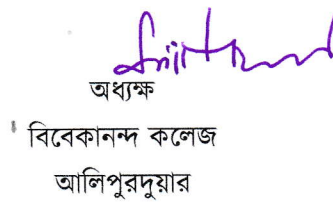 অধ্যক্ষ
বিবেকানন্দ কলেজ
আলিপুরদুয়ার